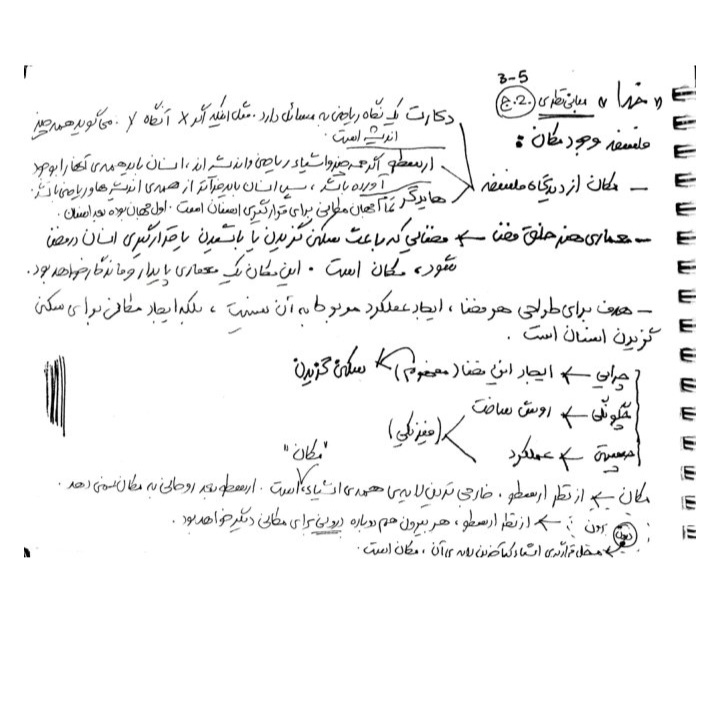 3-5
«خدا» مبانی نظری ج.2
فلسفه وجود مکان:
– مکان از دیدگاه فلسفه
دکارت یک نگاه ریاضی به مسائل دارد. مثل اینکه اگر X آنگاه Y. می‌گوید همه چیز
اندیشه است.
ارسطو اگر همه چیز و اشیاء ریاضی و اندیشه اند، انسان باید همه‌ی آنها را بوجود
آورده باشد، پس انسان باید فراتر از همه‌ی اندیشه‌ها و ریاضی باشد.
هایدگر تمام جهان مکانی برای قرارگیری انسان است. اول جهان بوده بعد انسان.
– معماری هنر خلق فضا ← فضایی که باعث سکنی گزیدن یا باشیدن یا قرارگیری انسان در فضا
شود، مکان است. این مکان یک معماری پایدار و ماندگار خواهد بود.
– هدف برای طراحی هر فضا، ایجاد عملکرد مربوط به آن نیست، بلکه ایجاد مکانی برای سکنی
گزیدن انسان است.
چرایی ← ایجاد این فضا (مفهوم) ← سکنی گزیدن
چگونگی ← روش ساخت
چیستی ← عملکرد
(فیزیکی)
"مکان"
مکان ← از نظر ارسطو، خارجی ترین لایه‌ی همه‌ی اشیاء، است. ارسطو بعد روحانی به مکان نمی دهد.
درون : برون : ← از نظر ارسطو، هر بیرون هم دوباره درونی برای مکانی دیگر خواهد بود.
← محل قرارگیری اشیاء که آخرین لایه ی آن، مکان است.